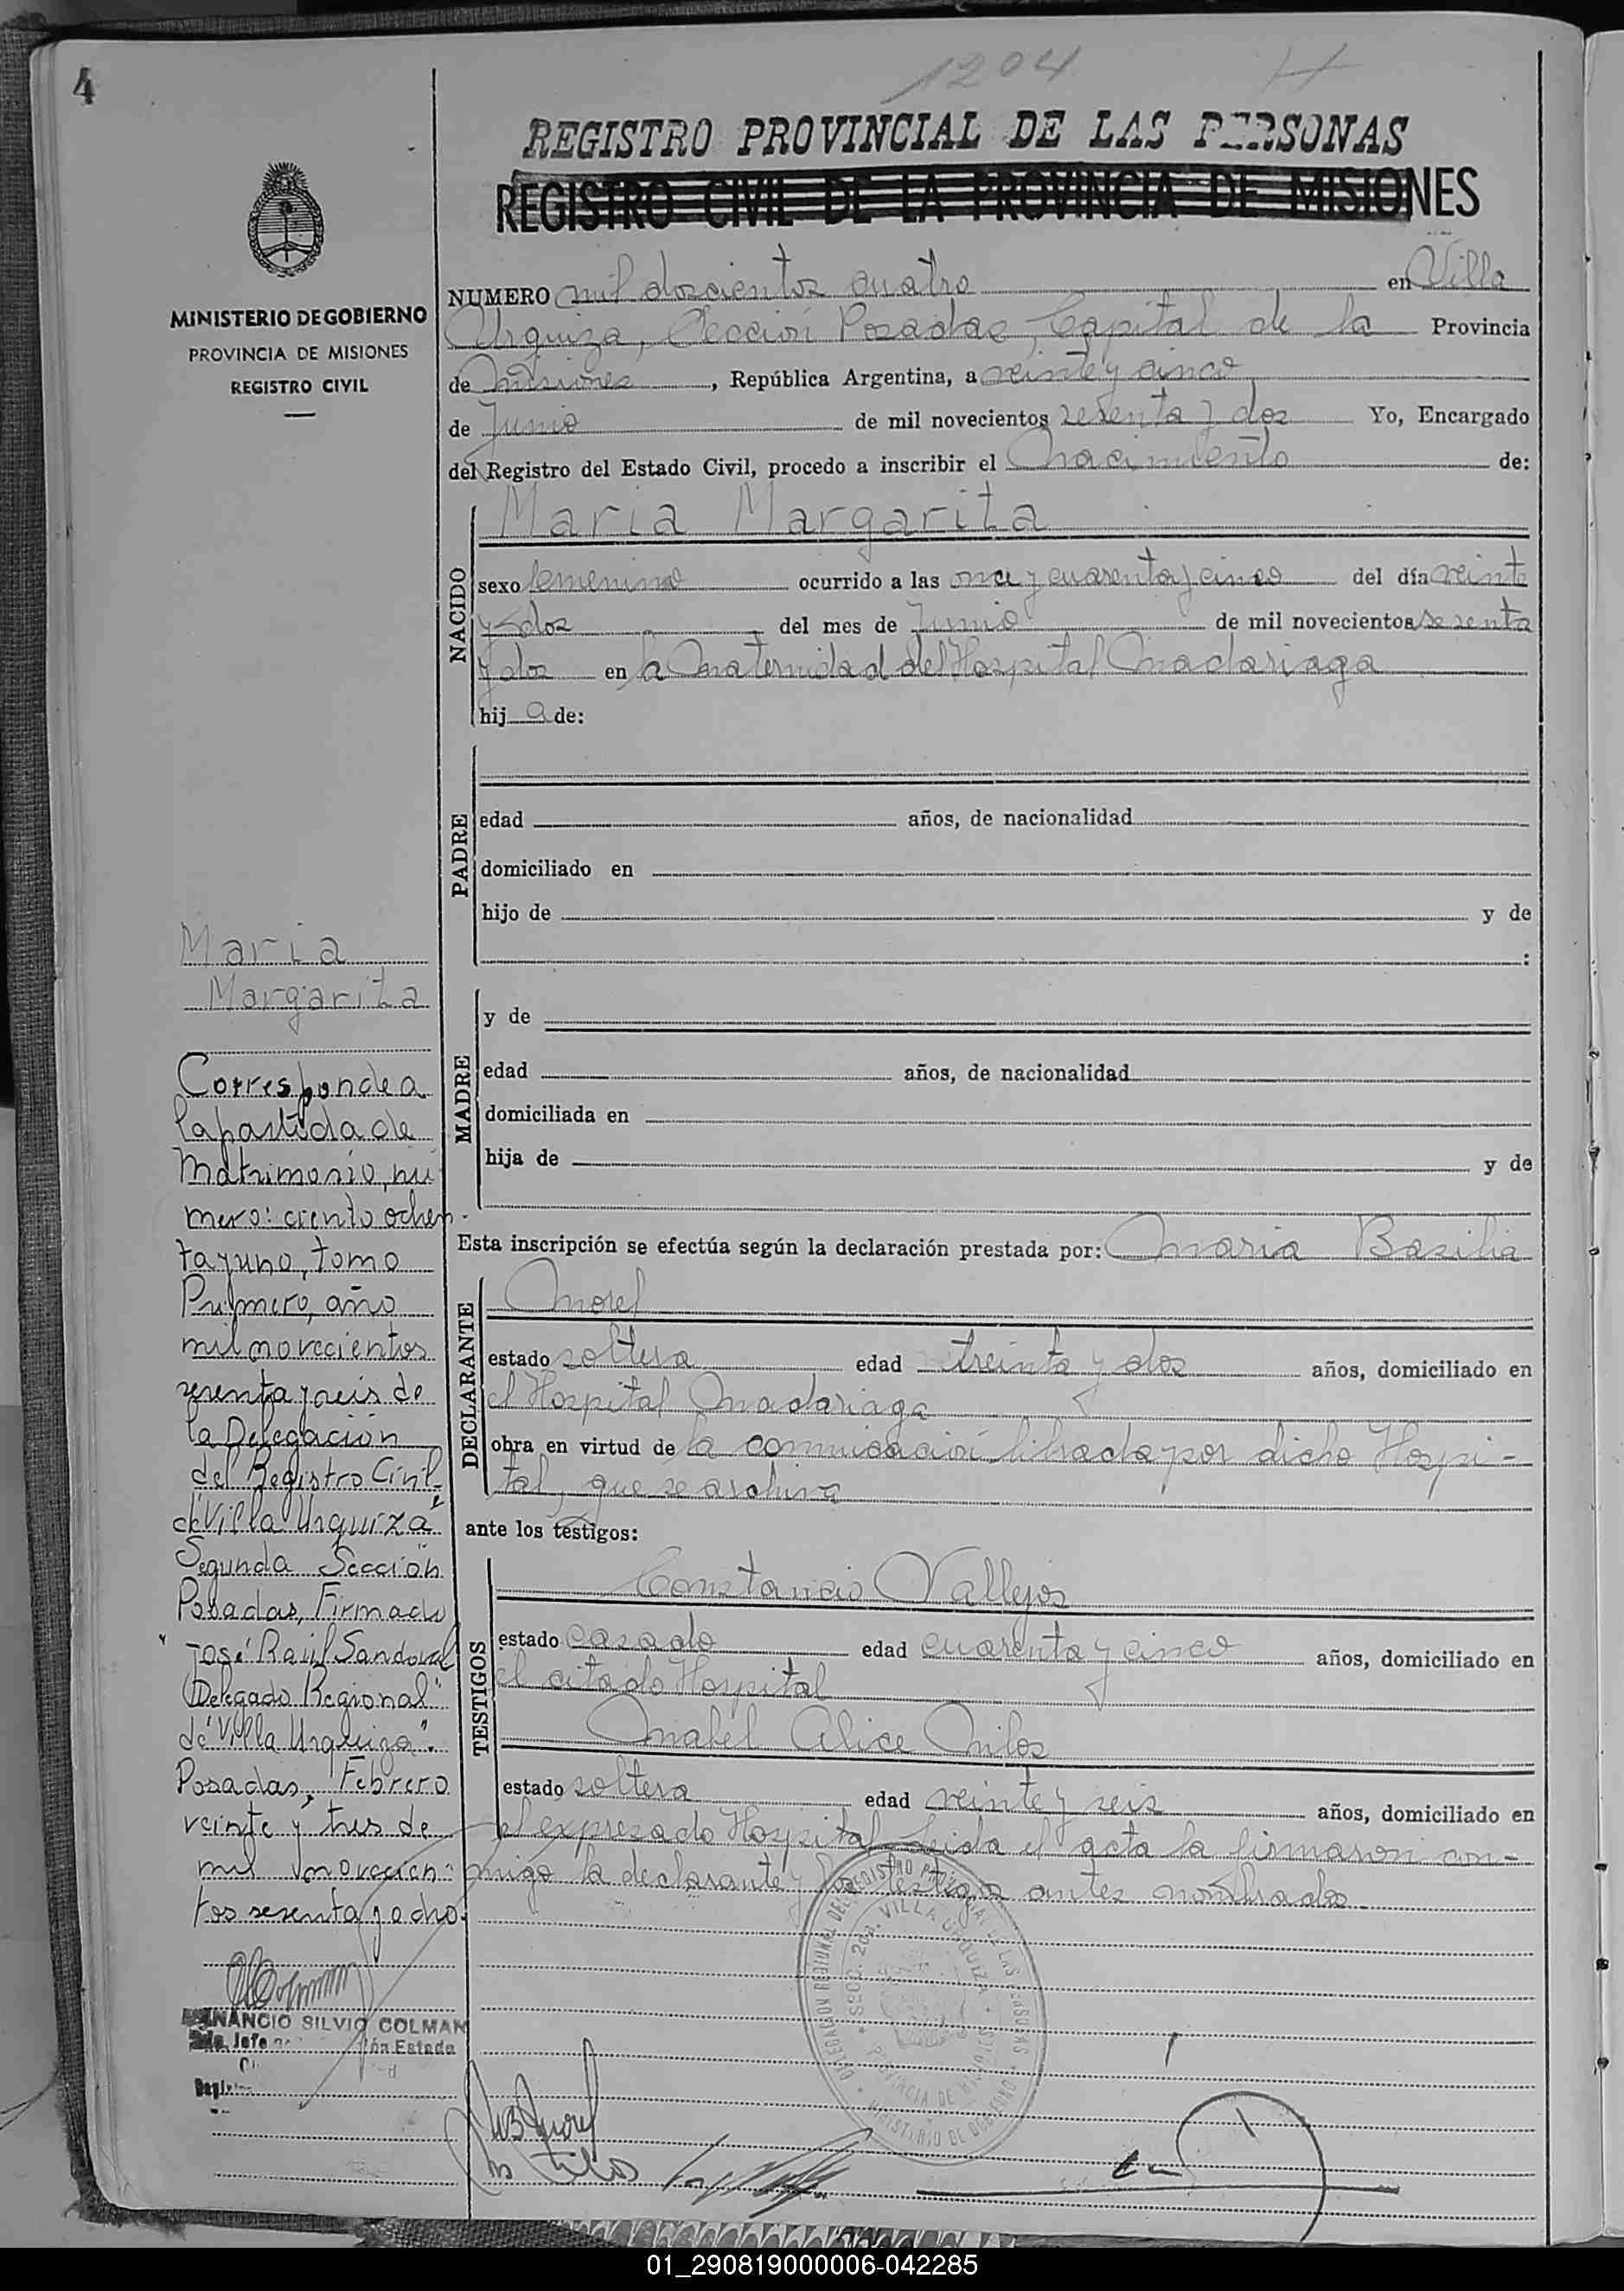 4
1204
REGISTRO PROVINCIAL DE LAS PERSONAS
REGISTRO CIVIL DE LA PROVINCIA DE MISIONES
MINISTERIO DE GOBIERNO
PROVINCIA DE MISIONES
REGISTRO CIVIL
NUMERO mil doscientos cuatro en Villa
Urquiza, Seccion Posadas, Capital de la Provincia
de Misiones, República Argentina, a veinte y cinco
de Junio de mil novecientos sesenta y dos Yo, Encargado
del Registro del Estado Civil, procedo a inscribir el Nacimiento de:
NACIDO
Maria Margarita
sexo femenino ocurrido a las once y cuarenta y cinco del día veinte
y dos del mes de Junio de mil novecientos sesenta
y dos en la Maternidad del Hospital Madariaga
hij a de:
PADRE
edad años, de nacionalidad
domiciliado en
hijo de y de
:
MADRE
y de
edad años, de nacionalidad
domiciliada en
hija de y de
Esta inscripción se efectúa según la declaración prestada por: Maria Basilia
DECLARANTE
Morel
estado soltera edad treinta y dos años, domiciliado en
el Hospital Madariaga
obra en virtud de la comunicación librada por dicho Hospi-
tal, que se archiva
ante los testigos:
TESTIGOS
Constancio Vallejos
estado casado edad cuarenta y cinco años, domiciliado en
el citado Hospital
Mabel Alice Milos
estado soltera edad veinte y seis años, domiciliado en
el expresado Hospital Leida el acta la firmaron con-
migo la declarante y los testigos antes nombrados.
Maria
Margarita
Corresponde a
la partida de
Matrimonio, nú
mero: ciento ochen-
ta y uno, tomo
Primero, año
mil novecientos
sesenta y seis de
la Delegación
del Registro Civil
de "Villa Urquiza"
Segunda Sección
Posadas, Firmado
"José Raúl Sandoval
Delegado Regional"
de "Villa Urquiza".
Posadas, Febrero
veinte y tres de
mil novecien-
tos sesenta y ocho.
NANCIO SILVIO COLMAN
DELEGACION REGIONAL DEL REGISTRO PROVINCIAL DE LAS PERSONAS
SECC. 2da. VILLA URQUIZA
PROVINCIA DE MISIONES
MINISTERIO DE GOBIERNO
MBMorel
01_290819000006-042285